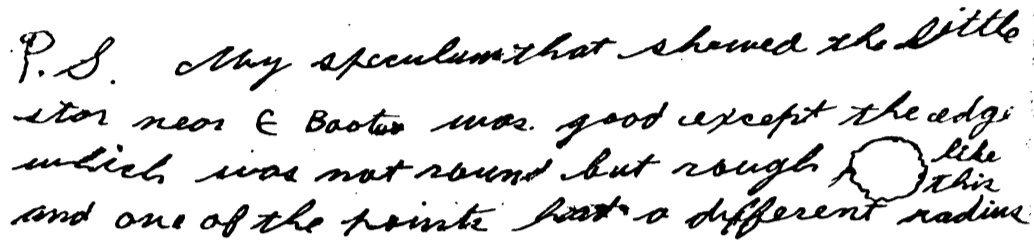 P.S. My speculum that showed the little
star near ε Bootes was good except the edge
which was not round but rough like this
and one of the points had a different radius